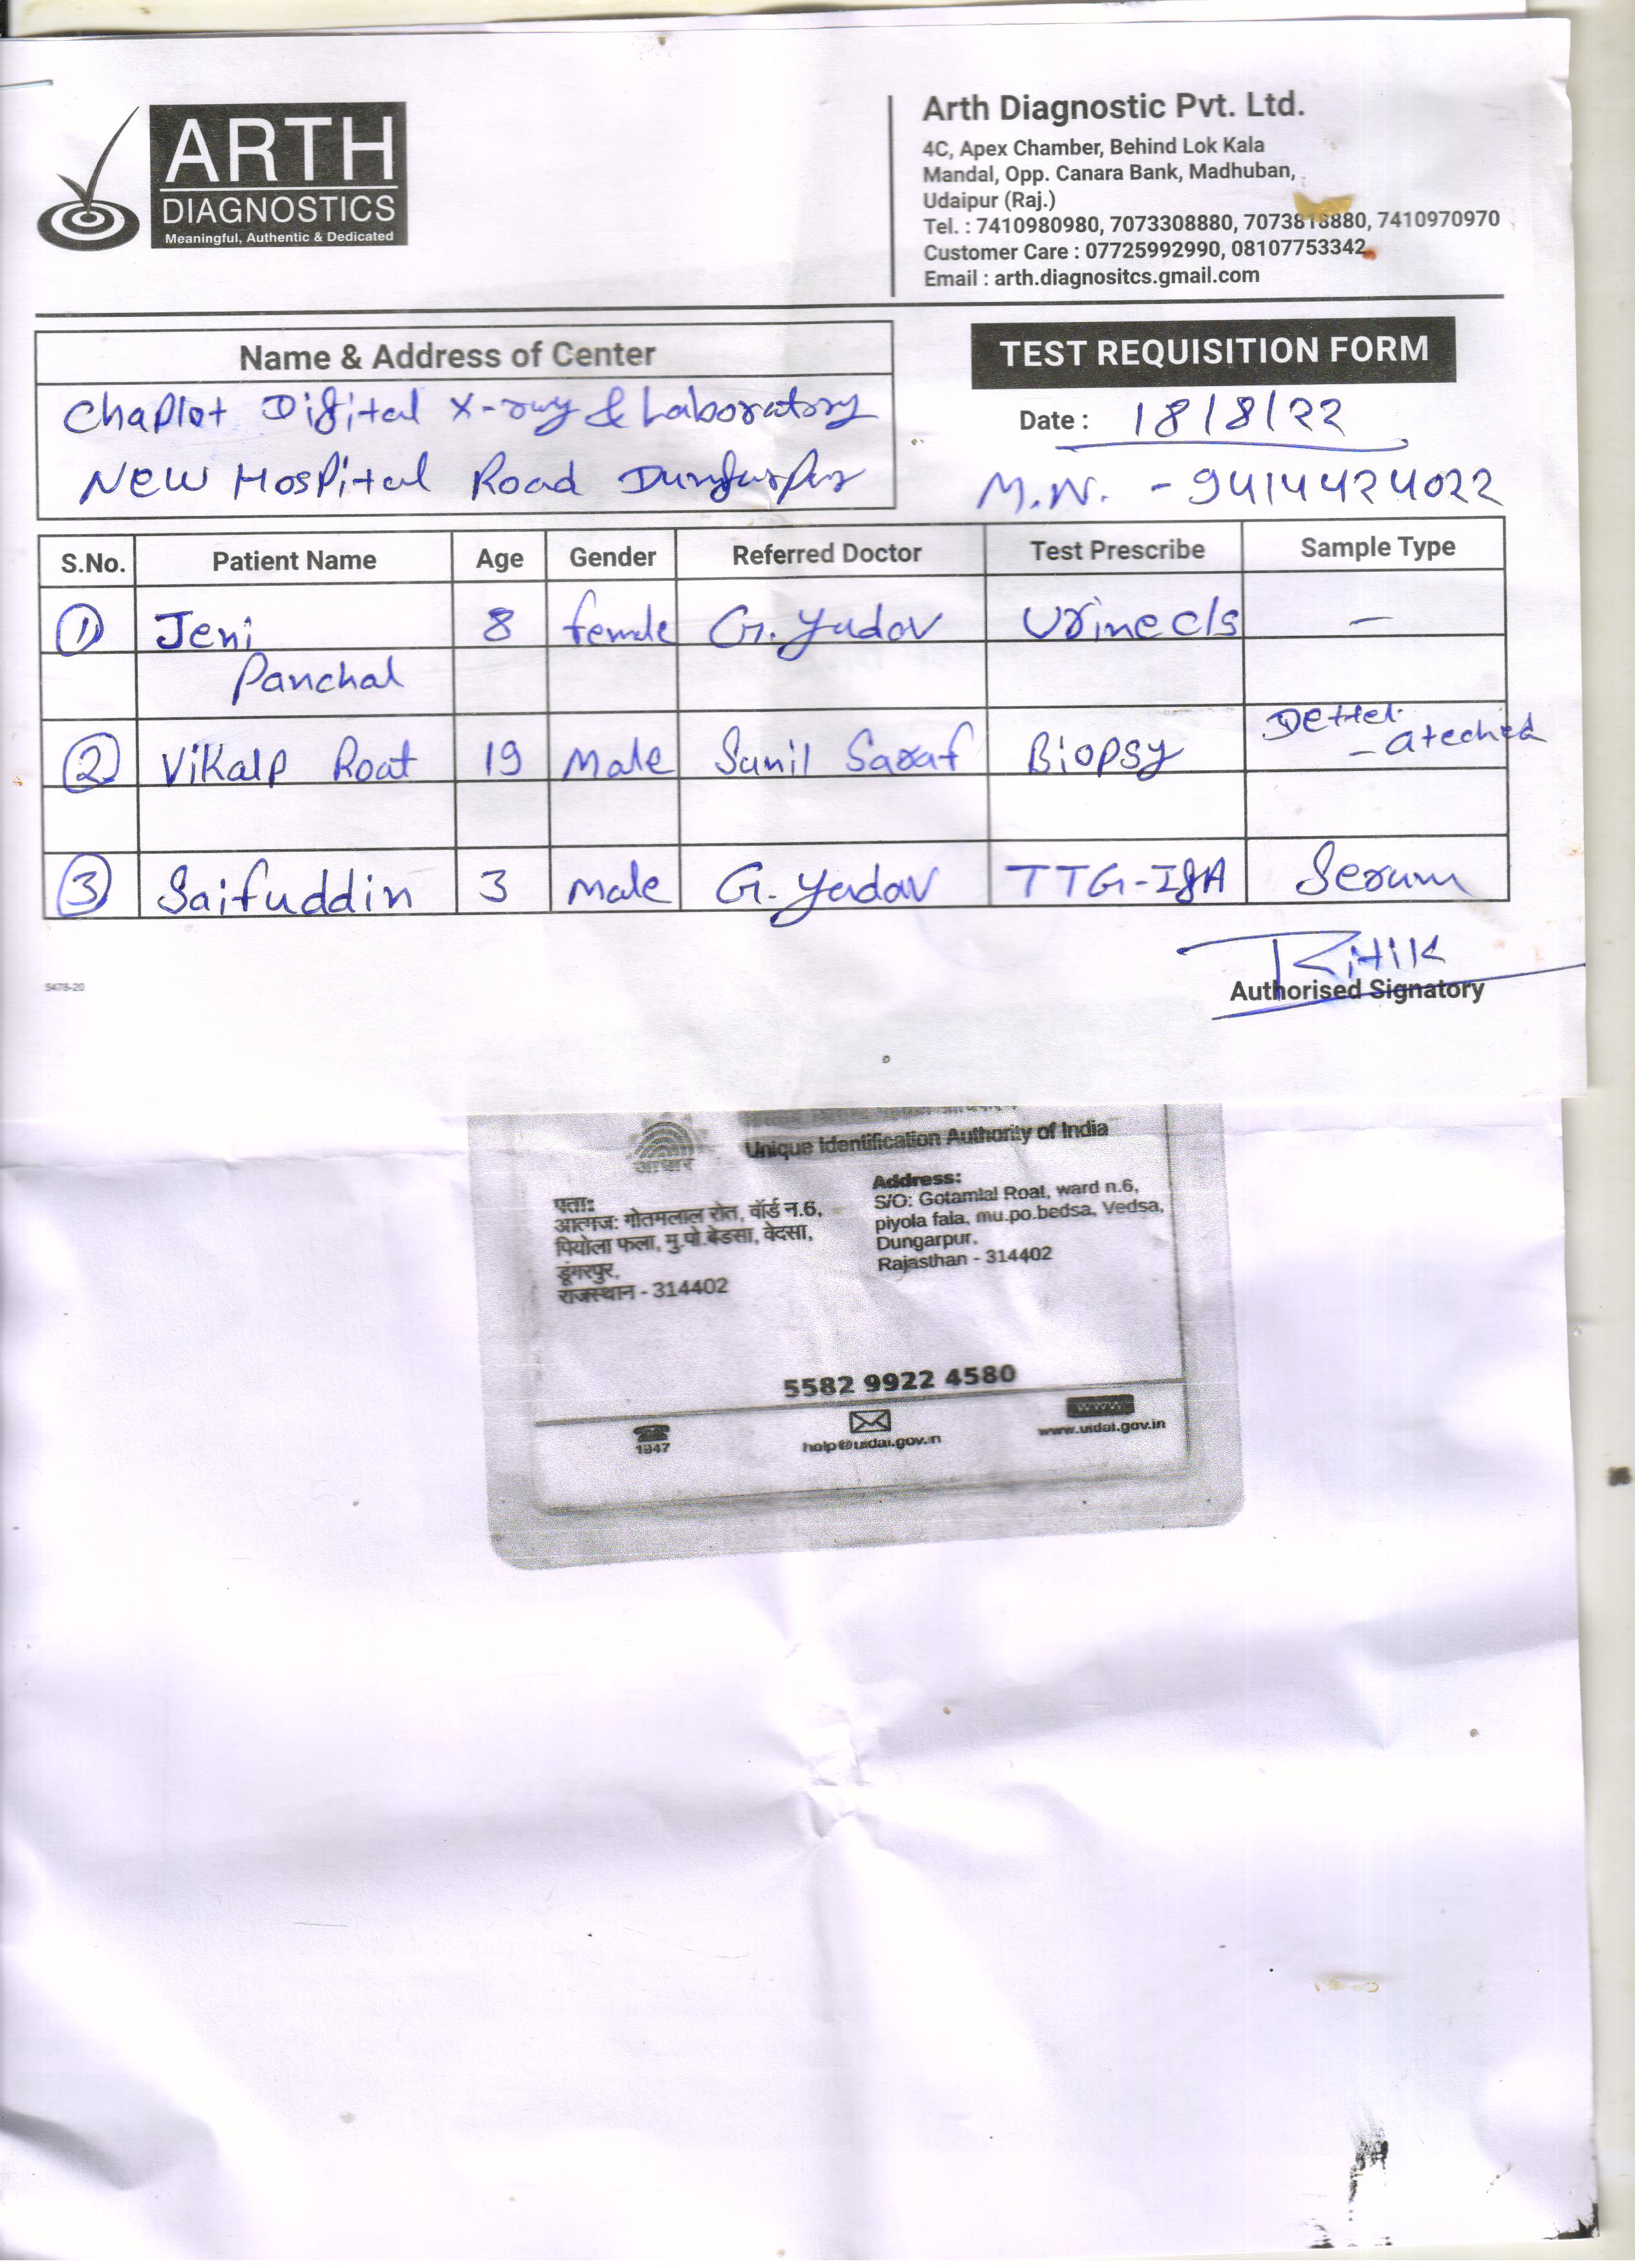 ARTH
DIAGNOSTICS
Meaningful, Authentic & Dedicated
Arth Diagnostic Pvt. Ltd.
4C, Apex Chamber, Behind Lok Kala
Mandal, Opp. Canara Bank, Madhuban,
Udaipur (Raj.)
Tel. : 7410980980, 7073308880, 7073818880, 7410970970
Customer Care : 07725992990, 08107753342
Email : arth.diagnositcs.gmail.com
Name & Address of Center
Chaplot Digital X-ray & Laboratory
New Hospital Road Dungarpur
TEST REQUISITION FORM
Date : 18/8/22
M.N. - 9414424022
S.No. Patient Name Age Gender Referred Doctor Test Prescribe Sample Type
1 Jeni 8 female G. Yadav Urine c/s —
Panchal
2 Vikalp Roat 19 Male Sunil Saraf Biopsy Dettel - ateched
3 Saifuddin 3 Male G. Yadav TTG-IgA Serum
Ritik
Authorised Signatory
5478-20
Unique Identification Authority of India
आधार
पता:
आत्मज: गोतमलाल रोत, वॉर्ड न.6,
पियोला फला, मु.पो.बेडसा, वेदसा,
डूंगरपुर,
राजस्थान - 314402
Address:
S/O: Gotamlal Roat, ward n.6,
piyola fala, mu.po.bedsa, Vedsa,
Dungarpur,
Rajasthan - 314402
5582 9922 4580
1947
help@uidai.gov.in
www
www.uidai.gov.in